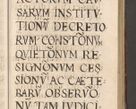 ACTORUM CAU
SARUM INSTITV
TIONUM DECRETO
RUM CONSTITONV
QUIETONUM RE
SIGNONUM CEN
SIONŨ AC CAETE
RARŨ OBSERVO
NŨ TAM IUDICI